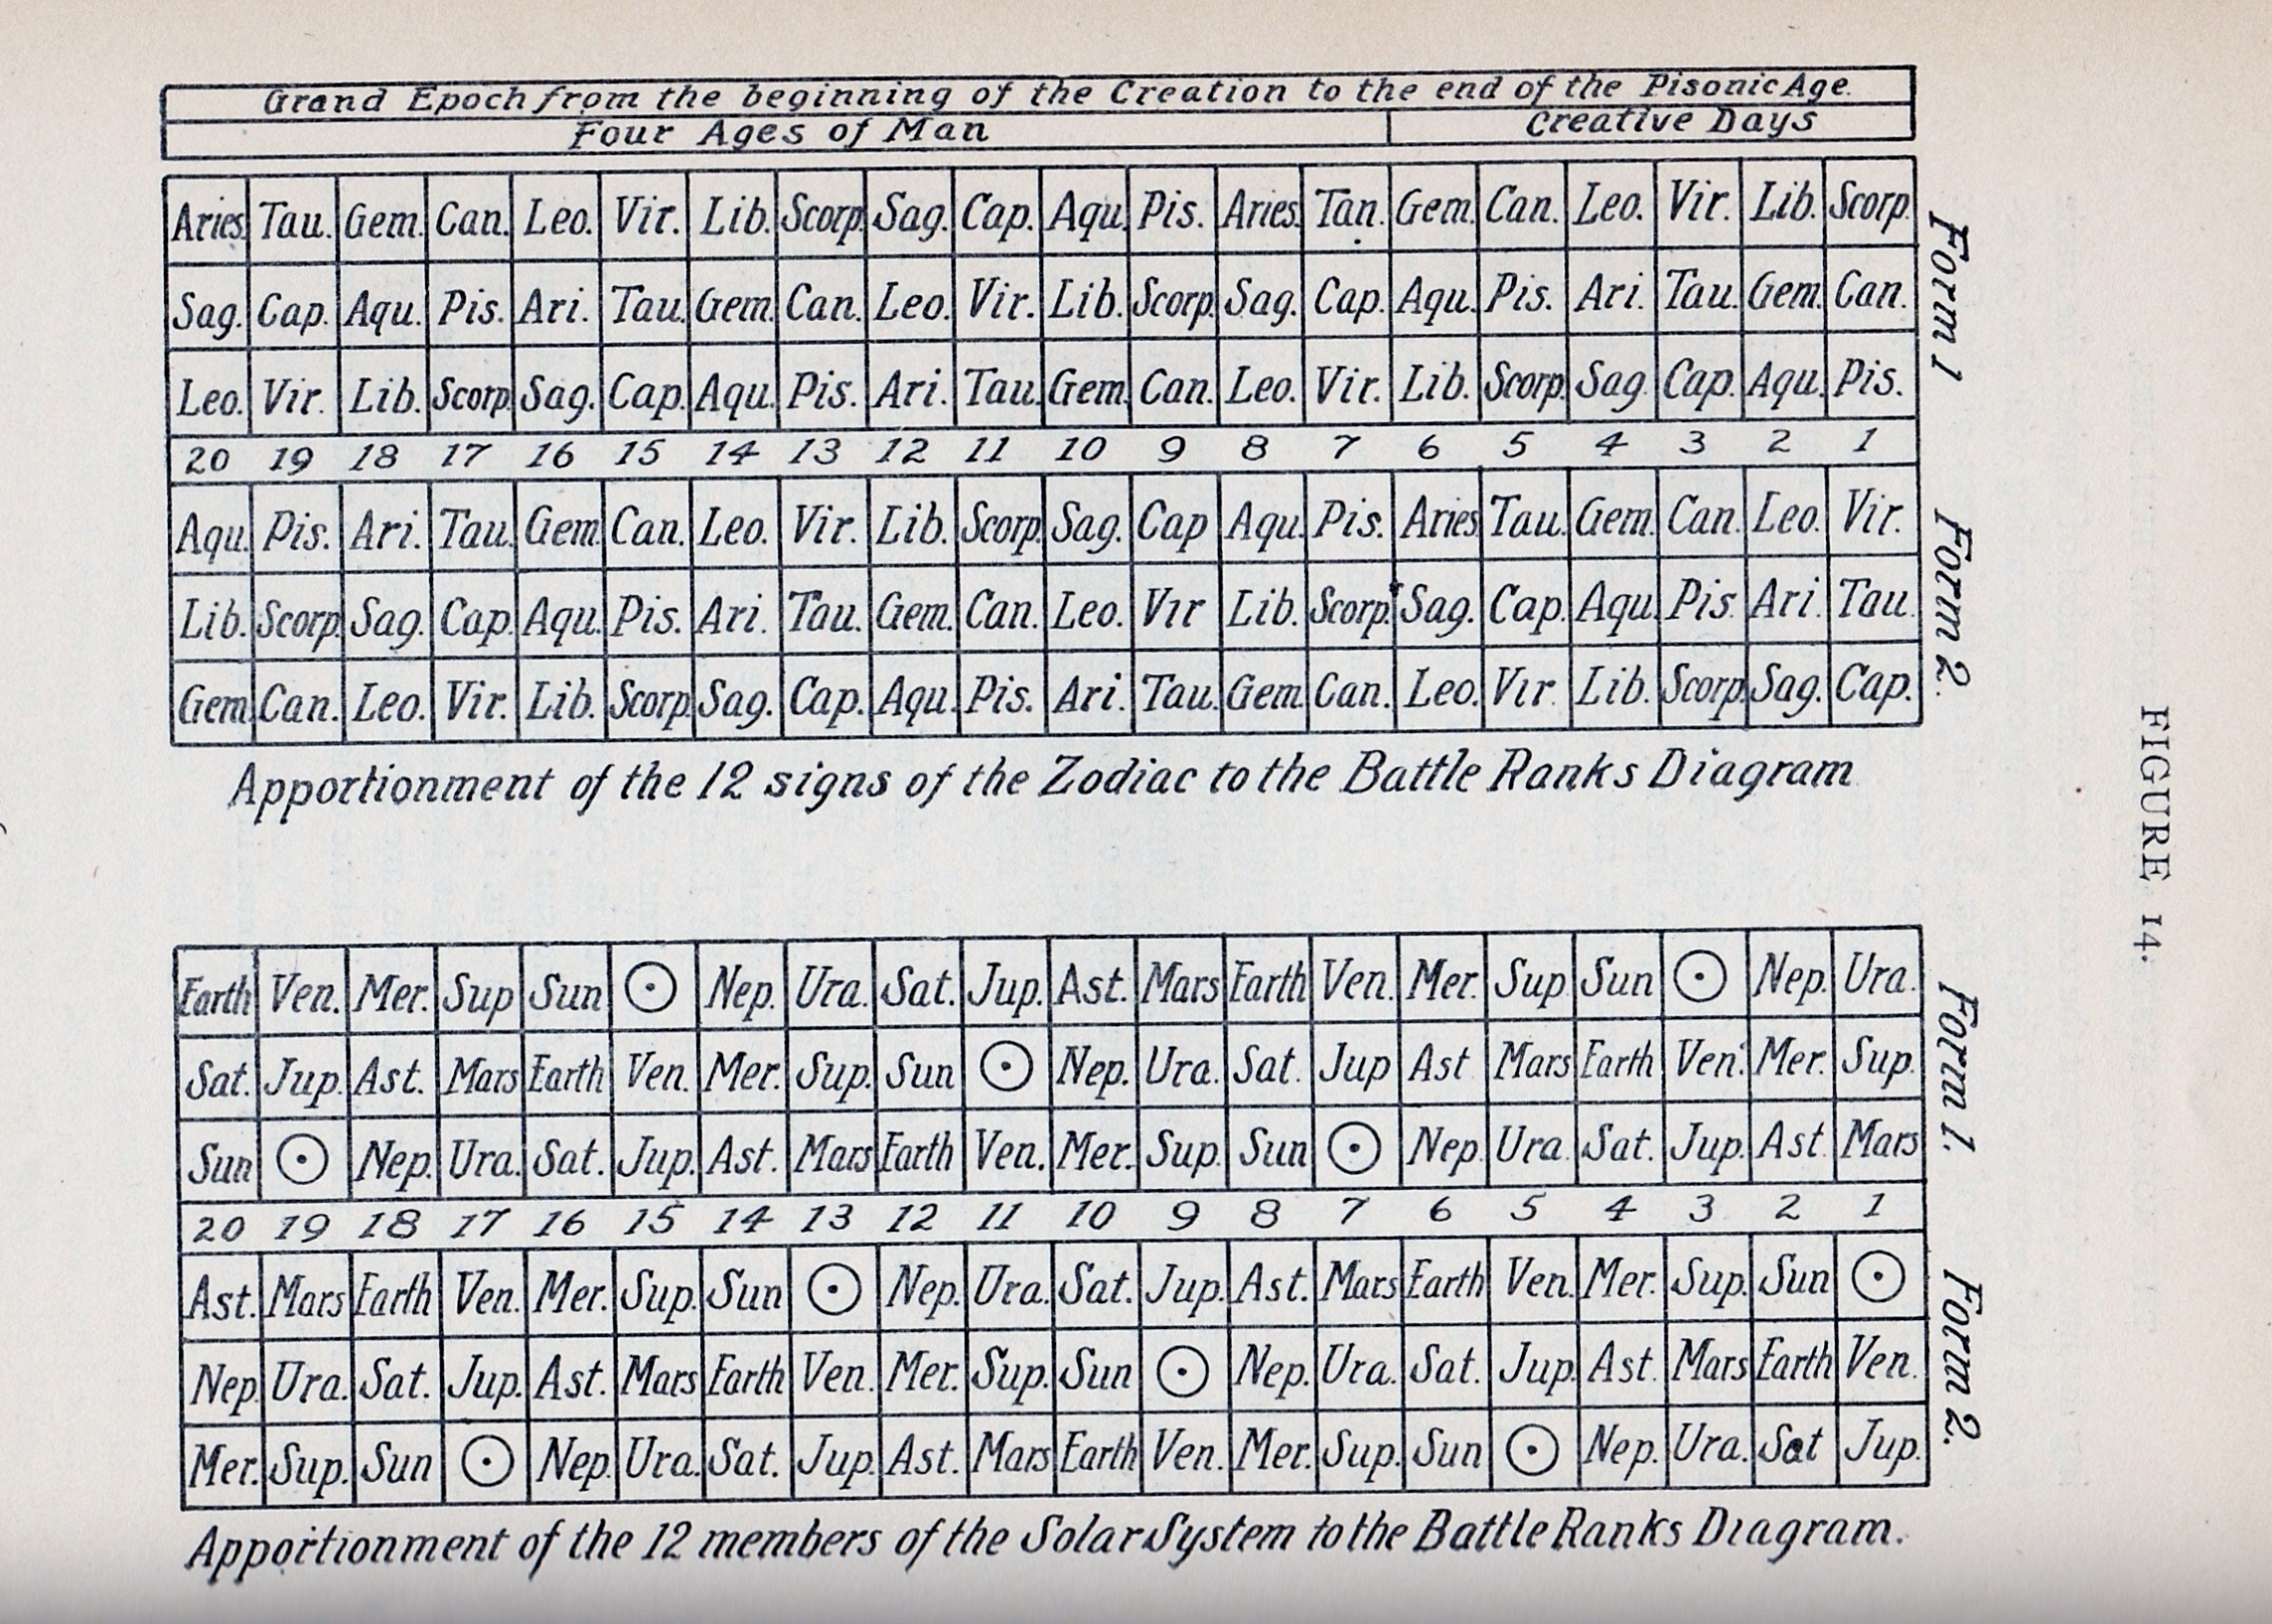 Grand Epoch from the beginning of the Creation to the end of the Pisonic Age.
Four Ages of Man Creative Days
Aries. Tau. Gem. Can. Leo. Vir. Lib. Scorp. Sag. Cap. Aqu. Pis. Aries. Tan. Gem. Can. Leo. Vir. Lib. Scorp.
Sag. Cap. Aqu. Pis. Ari. Tau. Gem. Can. Leo. Vir. Lib. Scorp. Sag. Cap. Aqu. Pis. Ari. Tau. Gem. Can.
Leo. Vir. Lib. Scorp. Sag. Cap. Aqu. Pis. Ari. Tau. Gem. Can. Leo. Vir. Lib. Scorp. Sag. Cap. Aqu. Pis.
Form 1
20 19 18 17 16 15 14 13 12 11 10 9 8 7 6 5 4 3 2 1
Aqu. Pis. Ari. Tau. Gem. Can. Leo. Vir. Lib. Scorp. Sag. Cap Aqu. Pis. Aries Tau. Gem. Can. Leo. Vir.
Lib. Scorp. Sag. Cap. Aqu. Pis. Ari. Tau. Gem. Can. Leo. Vir Lib. Scorp. Sag. Cap. Aqu. Pis. Ari. Tau.
Gem. Can. Leo. Vir. Lib. Scorp. Sag. Cap. Aqu. Pis. Ari. Tau. Gem. Can. Leo. Vir. Lib. Scorp. Sag. Cap.
Form 2.
Apportionment of the 12 signs of the Zodiac to the Battle Ranks Diagram
FIGURE 14.
Earth Ven. Mer. Sup Sun ☉ Nep. Ura. Sat. Jup. Ast. Mars Earth Ven. Mer. Sup Sun ☉ Nep. Ura.
Sat. Jup. Ast. Mars Earth Ven. Mer. Sup. Sun ☉ Nep. Ura. Sat. Jup Ast Mars Earth Ven. Mer. Sup.
Sun ☉ Nep. Ura. Sat. Jup. Ast. Mars Earth Ven. Mer. Sup. Sun ☉ Nep. Ura. Sat. Jup. Ast. Mars
Form 1.
20 19 18 17 16 15 14 13 12 11 10 9 8 7 6 5 4 3 2 1
Ast. Mars Earth Ven. Mer. Sup. Sun ☉ Nep. Ura. Sat. Jup. Ast. Mars Earth Ven. Mer. Sup. Sun ☉
Nep. Ura. Sat. Jup. Ast. Mars Earth Ven. Mer. Sup. Sun ☉ Nep. Ura. Sat. Jup. Ast. Mars Earth Ven.
Mer. Sup. Sun ☉ Nep. Ura. Sat. Jup. Ast. Mars Earth Ven. Mer. Sup. Sun ☉ Nep. Ura. Sat Jup.
Form 2.
Apportionment of the 12 members of the Solar System to the Battle Ranks Diagram.